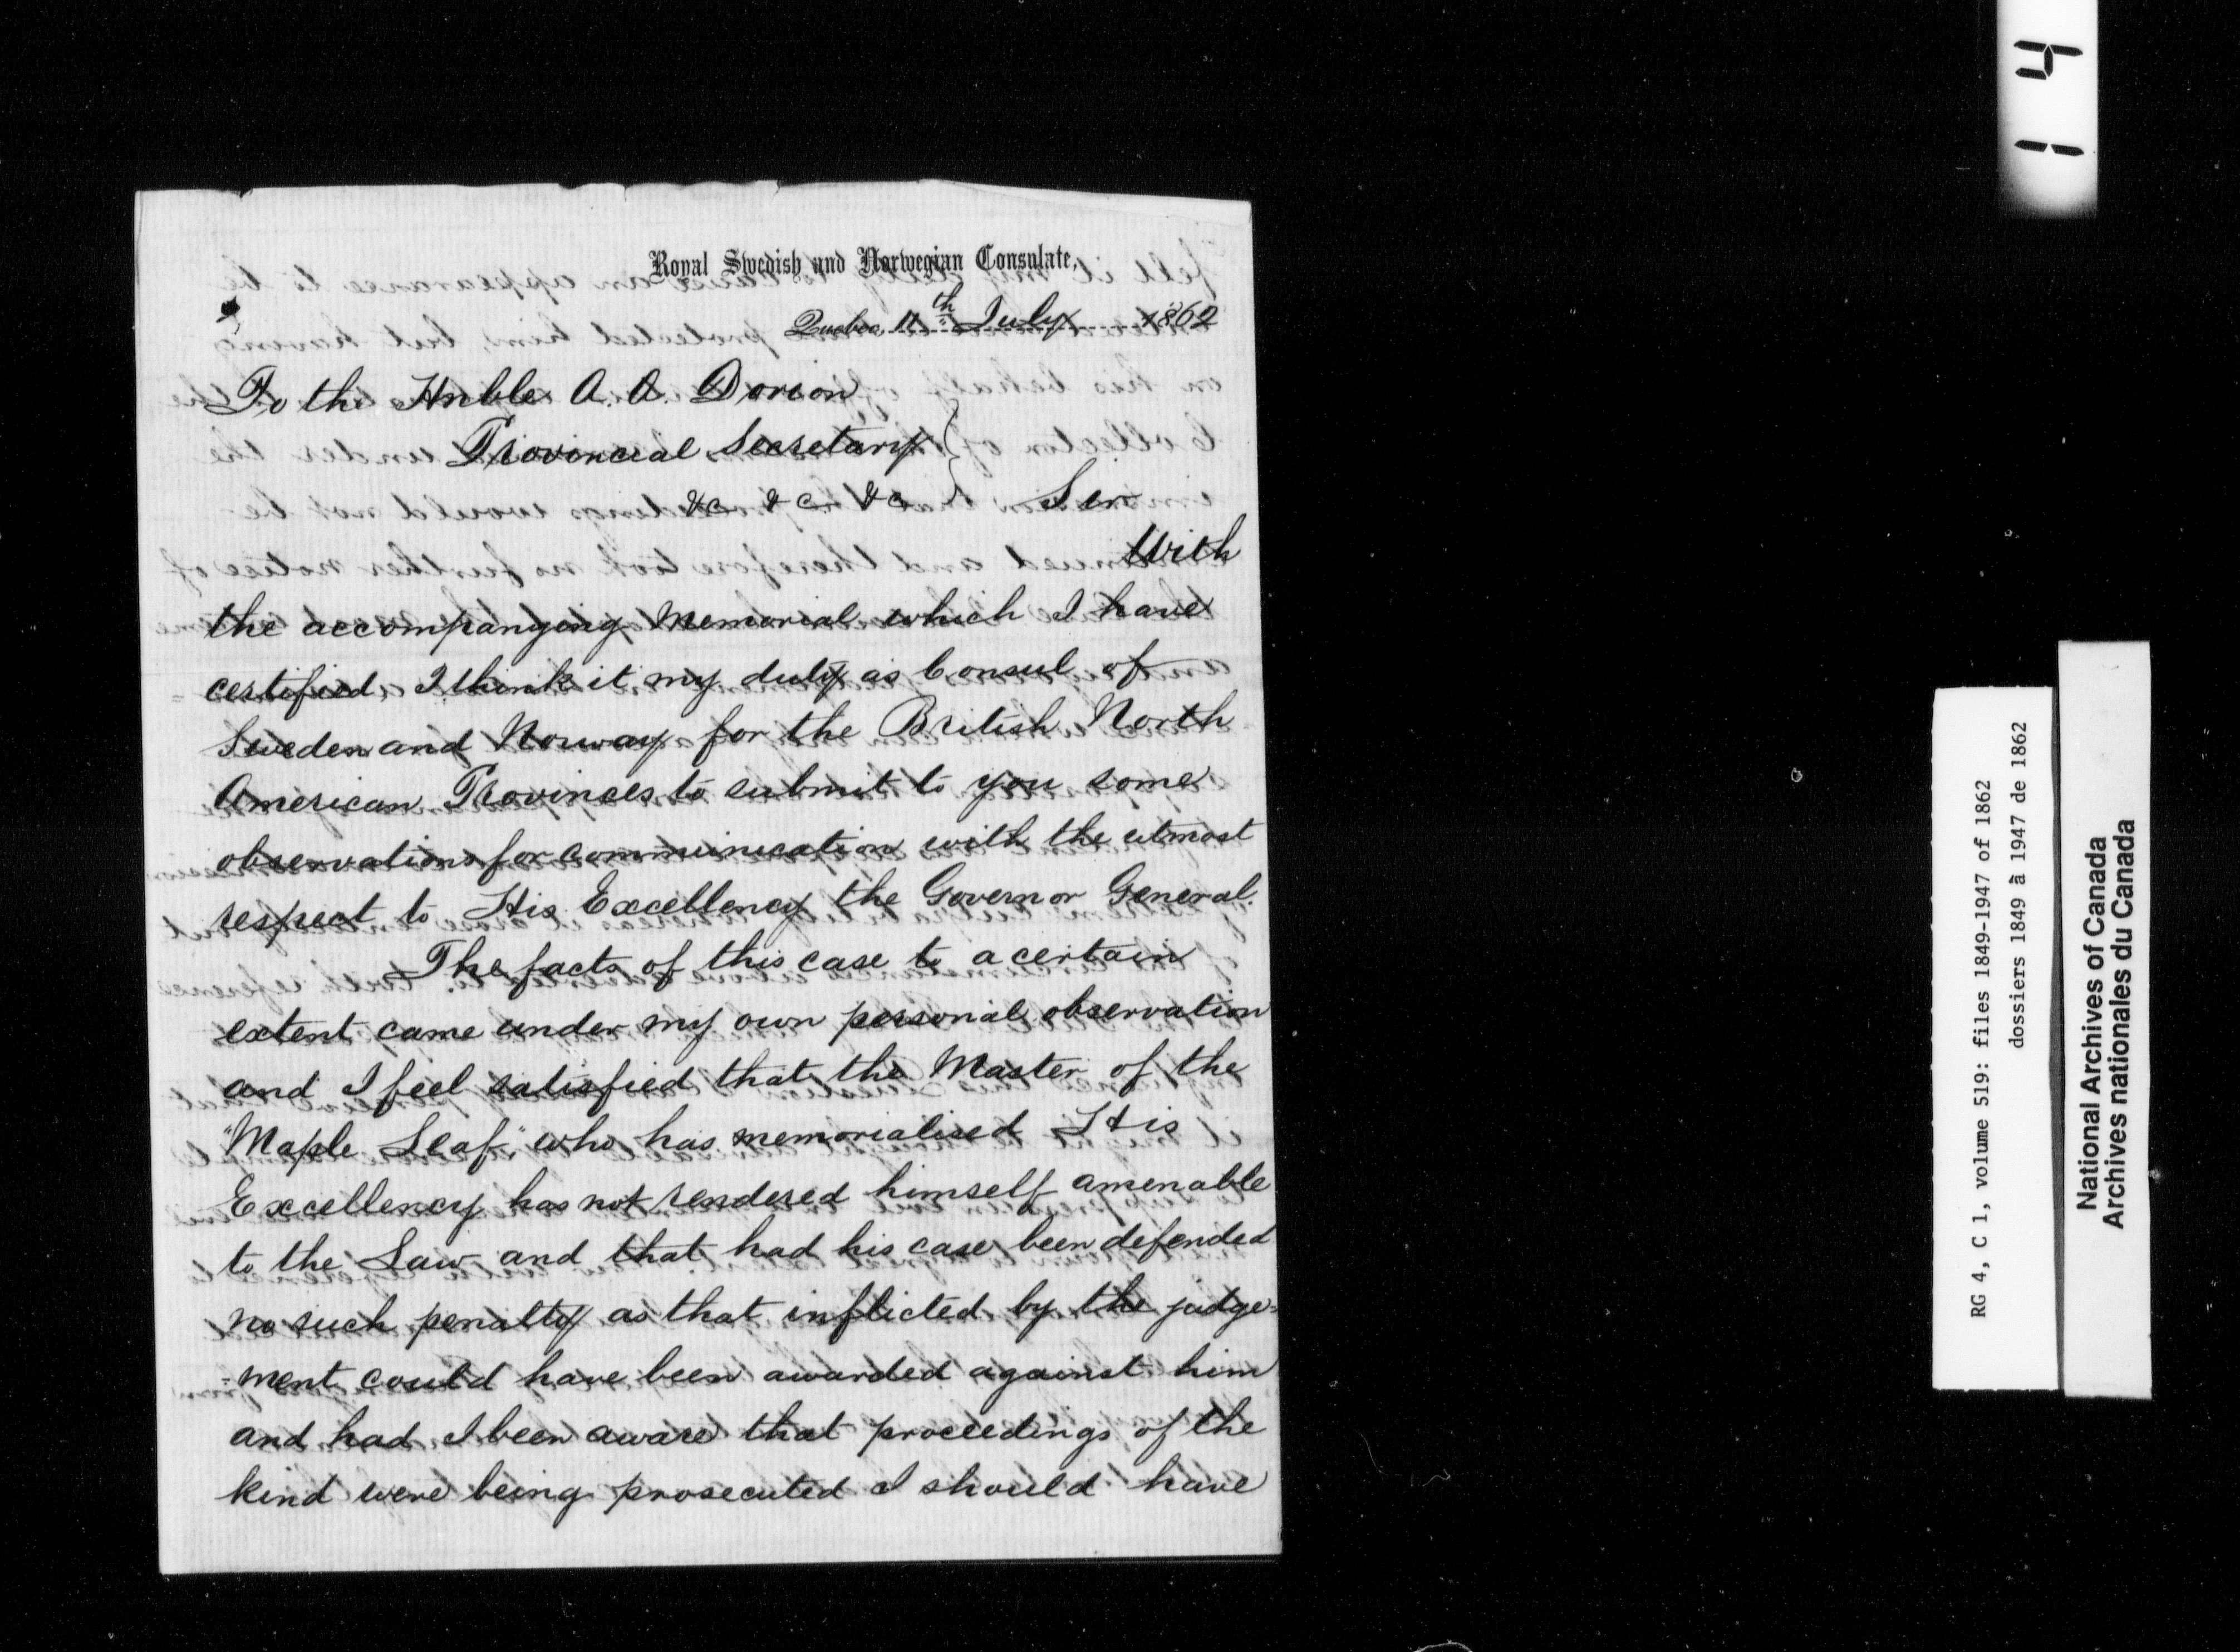 Royal Swedish and Norwegian Consulate,
Quebec, 11th July 1862
To the Hnble A. A. Dorion
Provincial Secretary
&c &c &c } Sir
With
the accompanying Memorial which I have
certified, I think it my duty as Consul of
Sweden and Norway for the British North
American Provinces to submit to you some
observations for communication with the utmost
respect to His Excellency the Governor General.
The facts of this case to a certain
extent came under my own personal observation
and I feel satisfied that the Master of the
"Maple Leaf", who has memorialised His
Excellency has not rendered himself amenable
to the Law and that had his case been defended
no such penalty as that inflicted by the judge=
=ment could have been awarded against him
and had I been aware that proceedings of the
kind were being prosecuted I should have
14
RG 4, C 1, volume 519: files 1849-1947 of 1862
dossiers 1849 à 1947 de 1862
National Archives of Canada
Archives nationales du Canada